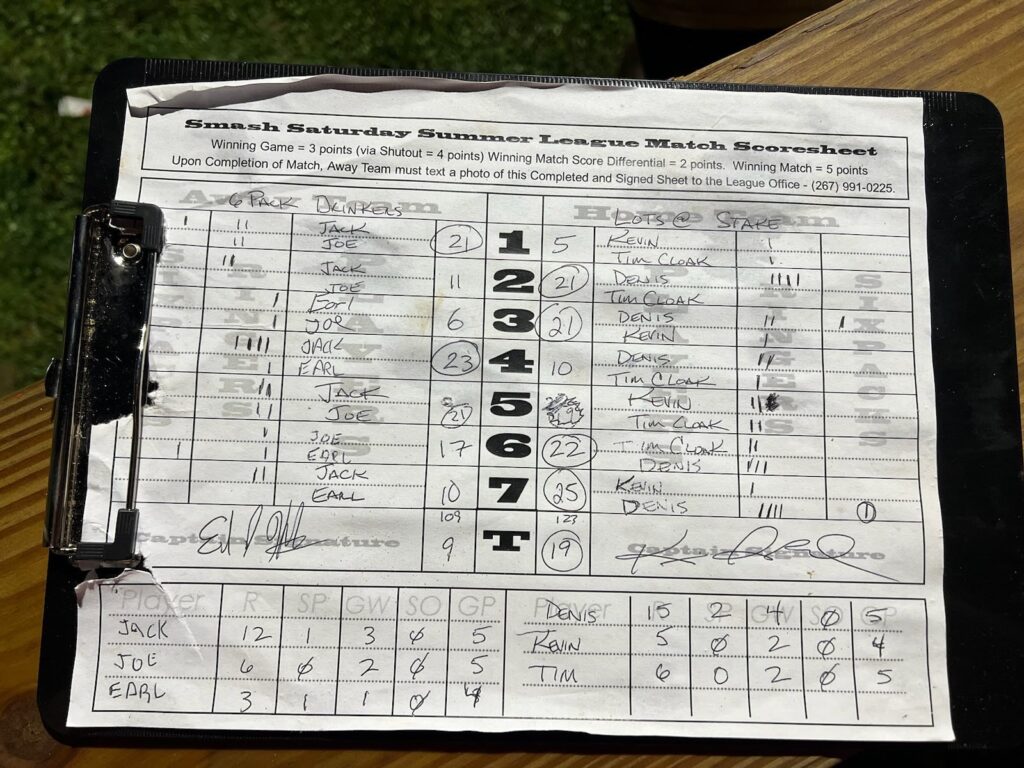 Smash Saturday Summer League Match Scoresheet
Winning Game = 3 points (via Shutout = 4 points) Winning Match Score Differential = 2 points. Winning Match = 5 points
Upon Completion of Match, Away Team must text a photo of this Completed and Signed Sheet to the League Office - (267) 991-0225.
Away Team Home Team
6 PACK DRINKERS LOTS @ STAKE
JACK 21 1 5 KEVIN
JOE TIM CLOAK
JACK 11 2 21 DENIS
JOE TIM CLOAK
Earl 6 3 21 DENIS
JOE KEVIN
JACK 23 4 10 DENIS
EARL TIM CLOAK
JACK 21 5 19 KEVIN
JOE TIM CLOAK
JOE 17 6 22 TIM CLOAK
EARL DENIS
JACK 10 7 25 KEVIN
EARL DENIS 1
109 123
Captain Signature 9 T 19 Captain Signature
Player R SP GW SO GP Player R SP GW SO GP
DENIS 15 2 4 0 5
JACK 12 1 3 0 5 KEVIN 5 0 2 0 4
JOE 6 0 2 0 5 TIM 6 0 2 0 5
EARL 3 1 1 0 4